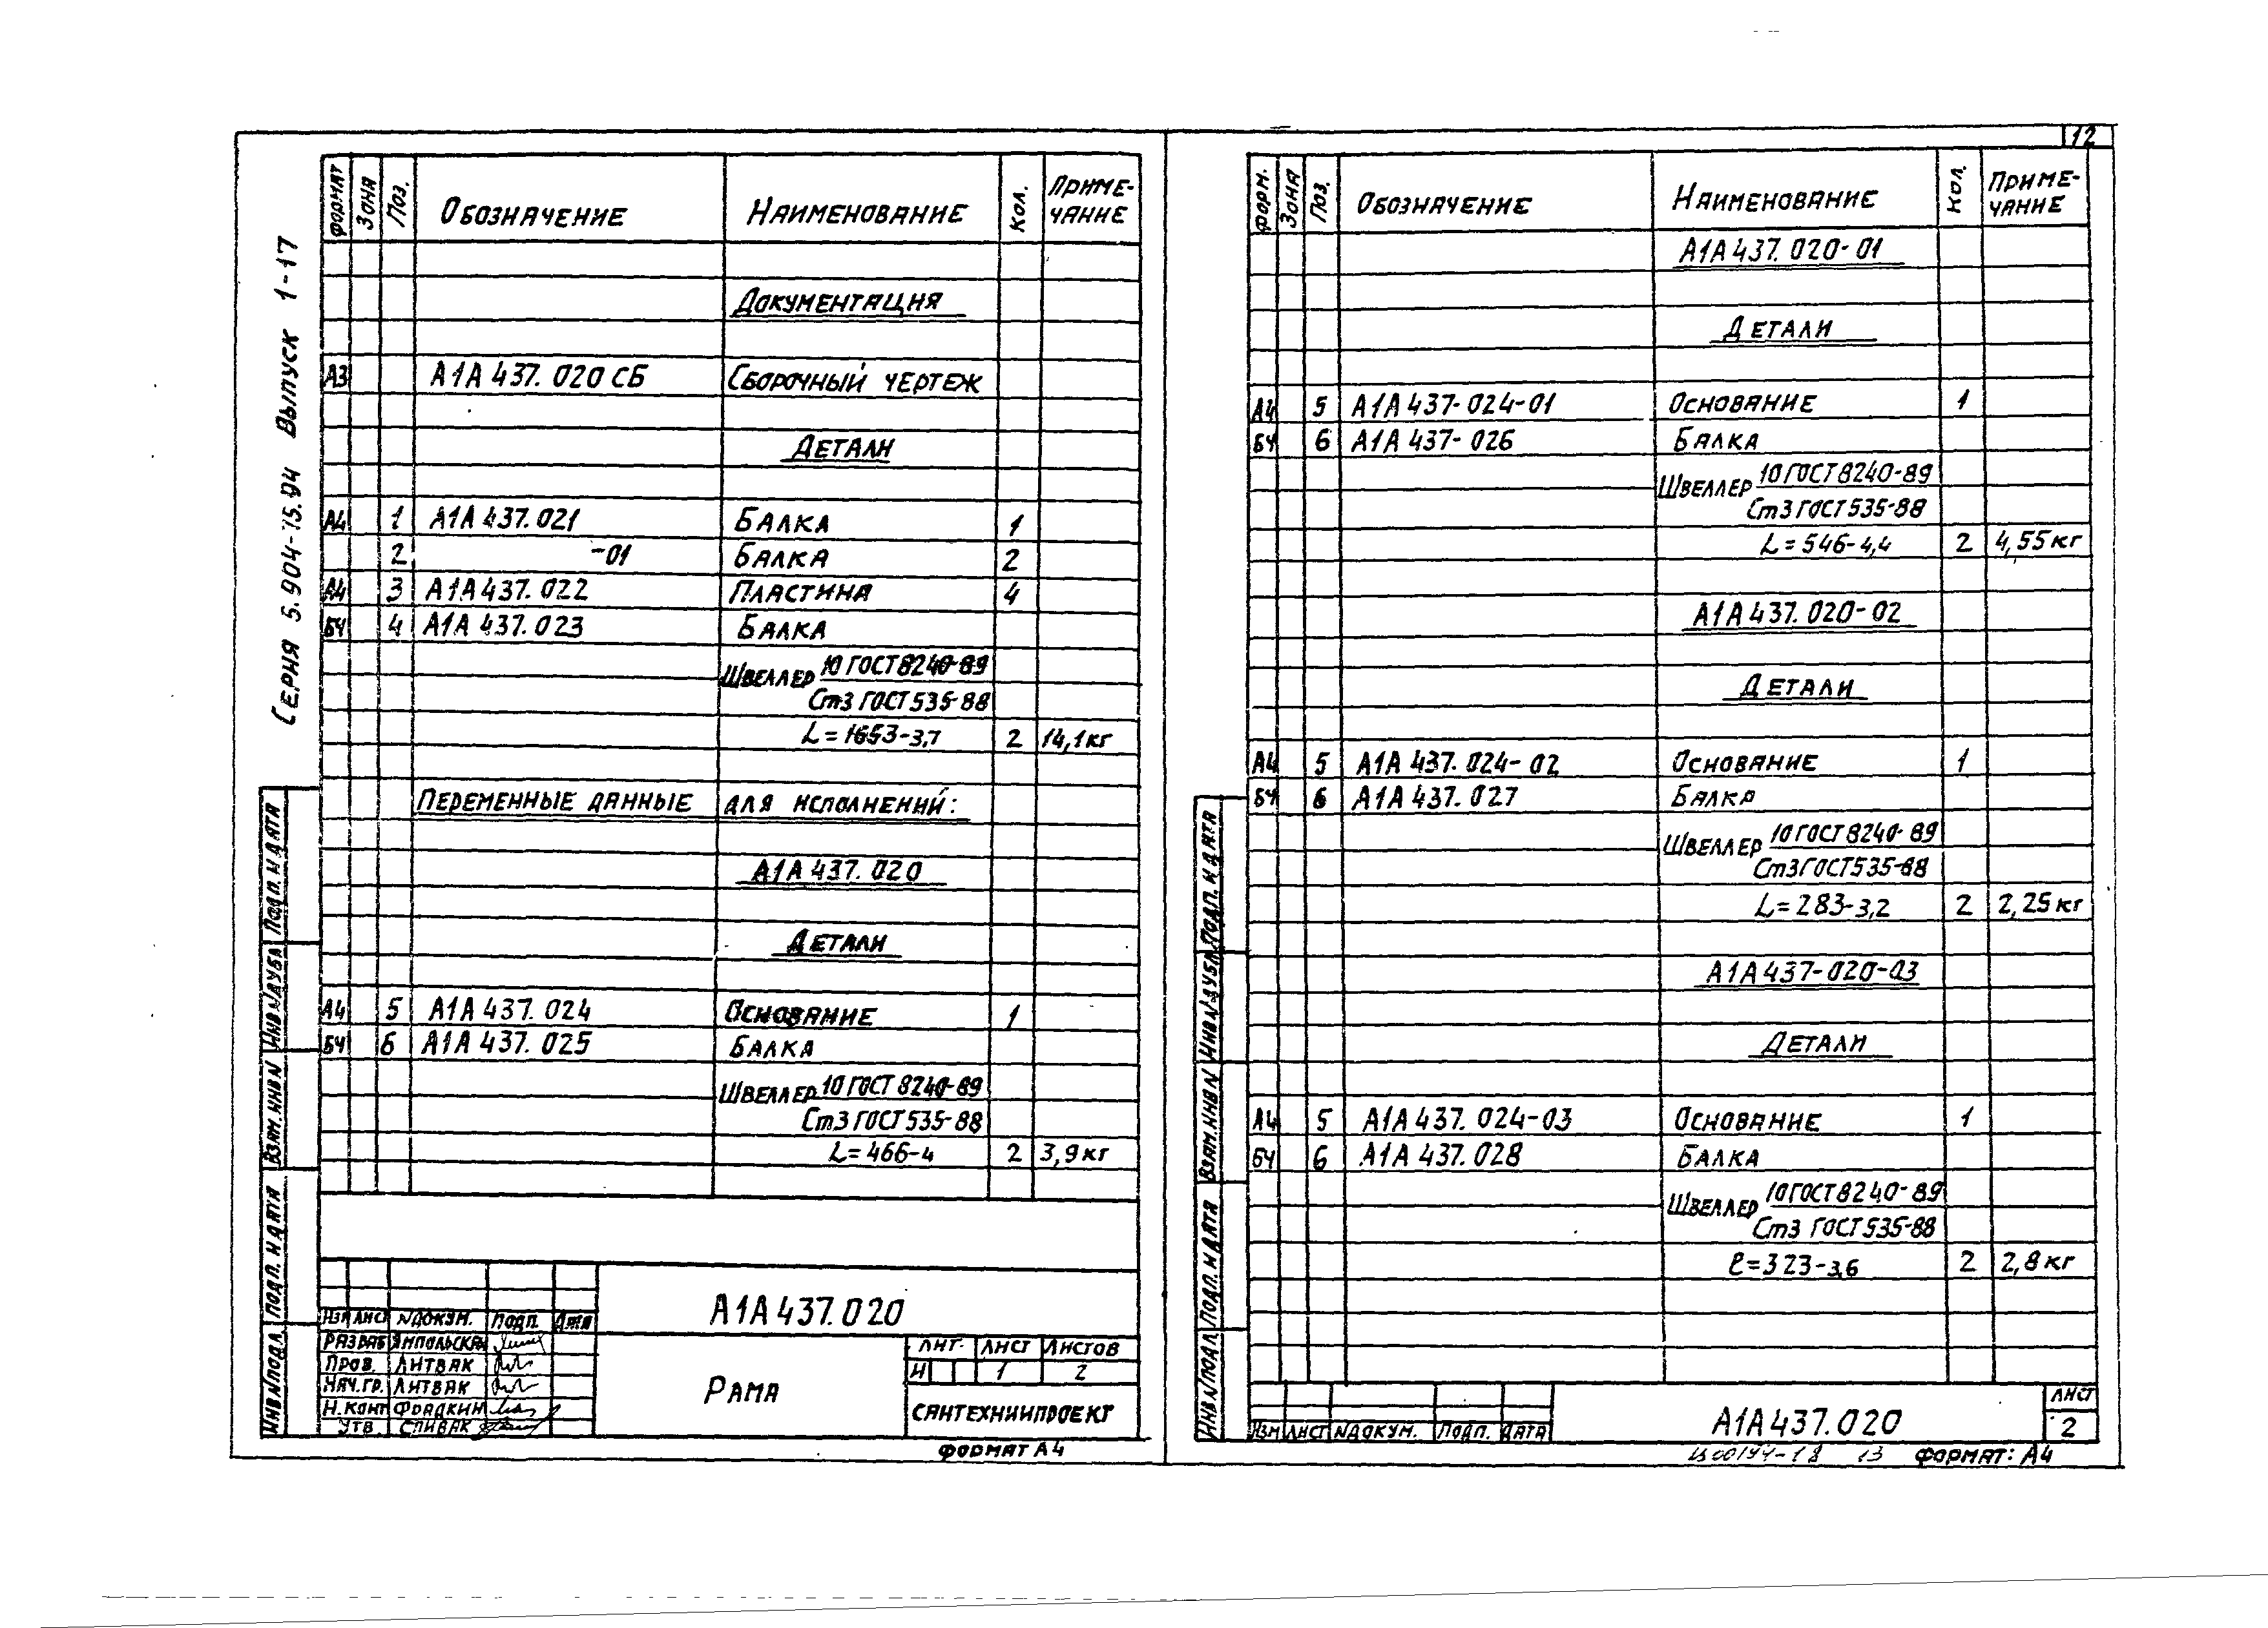 12
Серия 5.904-75.94 Выпуск 1-17
Формат Зона Поз. Обозначение Наименование Кол. Приме-
чание
Документация
А3 А1А 437.020 СБ Сборочный чертеж
Детали
А4 1 А1А 437.021 Балка 1
2 -01 Балка 2
А4 3 А1А 437.022 Пластина 4
БЧ 4 А1А 437.023 Балка
Швеллер 10 ГОСТ 8240-89
Ст3 ГОСТ 535-88
L=1653-3,7 2 14,1кг
Переменные данные для исполнений:
А1А 437.020
Детали
А4 5 А1А 437.024 Основание 1
БЧ 6 А1А 437.025 Балка
Швеллер 10 ГОСТ 8240-89
Ст3 ГОСТ 535-88
L=466-4 2 3,9кг
Подп. и дата
Инв. N дубл.
Взам. инв. N
Подп. и дата
Инв. N подл.
Изм Лист N докум. Подп. Дата
Разраб Ямпольская
Пров. Литвак
Нач.гр. Литвак
Н.конт Фрадкин
Утв. Спивак
А1А 437.020
Рама
Лит. Лист Листов
И 1 2
Сантехниипроект
Формат А4
Форм. Зона Поз. Обозначение Наименование Кол. Приме-
чание
А1А 437.020-01
Детали
А4 5 А1А 437-024-01 Основание 1
БЧ 6 А1А 437-026 Балка
Швеллер 10 ГОСТ 8240-89
Ст3 ГОСТ 535-88
L=546-4,4 2 4,55кг
А1А 437.020-02
Детали
А4 5 А1А 437.024-02 Основание 1
БЧ 6 А1А 437.027 Балка
Швеллер 10 ГОСТ 8240-89
Ст3 ГОСТ 535-88
L=283-3,2 2 2,25кг
А1А 437-020-03
Детали
А4 5 А1А 437.024-03 Основание 1
БЧ 6 А1А 437.028 Балка
Швеллер 10 ГОСТ 8240-89
Ст3 ГОСТ 535-88
ℓ=323-3,6 2 2,8кг
Подп. и дата
Инв. N дубл.
Взам. инв. N
Подп. и дата
Инв. N подл.
Изм Лист N докум. Подп. Дата
А1А 437.020
Лист
2
13 Формат: А4